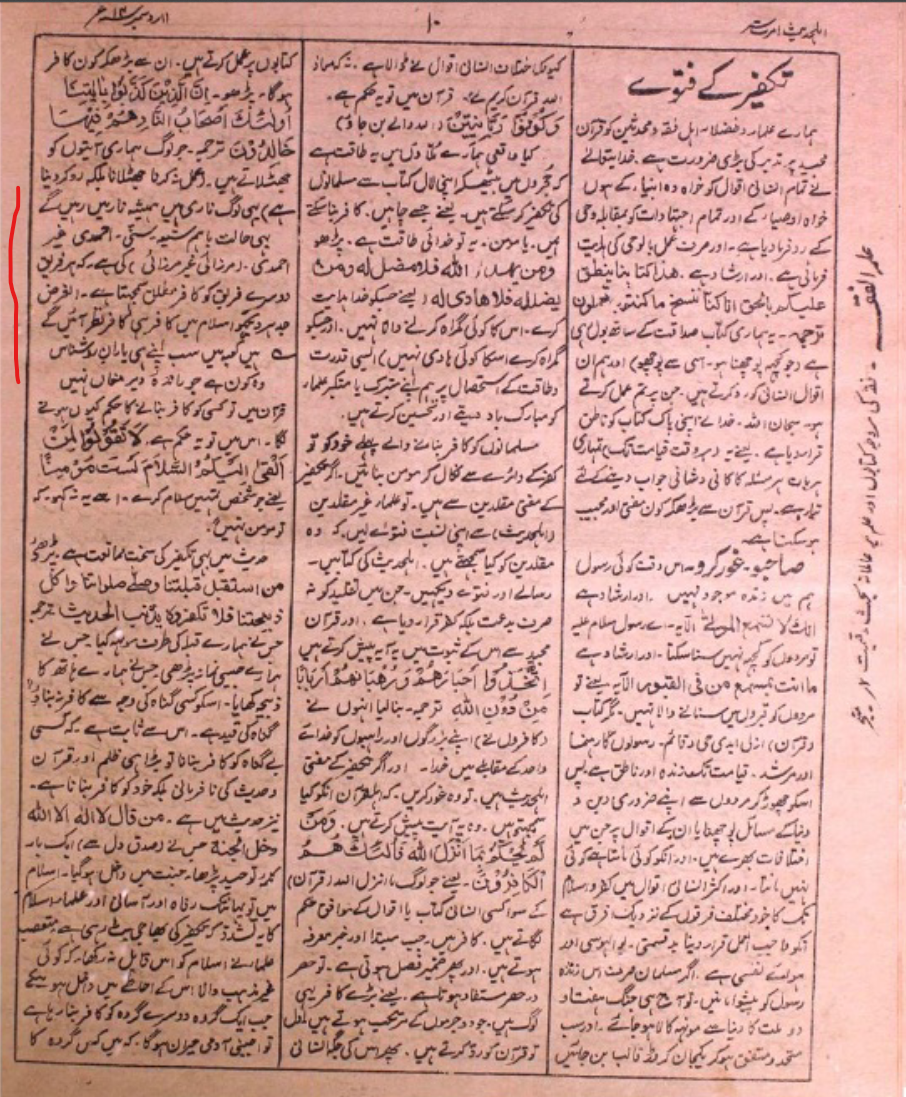 اہلحدیث امرتسر
۱۰
تکفیر کے فتوے
ہمارے علماء و فضلاء اہل فقہ و محدثین کو قرآن
مجید پر تدبر کی بڑی ضرورت ہے۔ خدا تعالے
نے تمام انسانی اقوال کو خواہ وہ انبیاء کے ہوں
خواہ اوصیاء کے اور تمام اجتہادات کو بمقابلہ وحی
کے رد فرما دیا ہے۔ اور صرف عمل بالوحی کی ہدایت
فرمائی ہے۔ اور ارشاد ہے۔ هذا كتابنا ينطق
عليكم بالحق انا كنا نستنسخ ما كنتم تعملون
ترجمہ۔ یہ ہماری کتاب صداقت کے ساتھ بول رہی
ہے (جو کچھ پوچھنا ہو۔ اسی سے پوچھو) اور ہم ان
اقوال انسانی کو رد کرتے ہیں۔ جن پر تم عمل کرتے
ہو۔ سبحان اللہ۔ خدا نے اپنی پاک کتاب کو ناطق
قرار دیا ہے۔ یعنے یہ ہر وقت قیامت تک تمہاری
ہر بات ہر مسئلہ کا کافی و شافی جواب دینے کے لئے
تیار ہے۔ پس قرآن سے بڑھکر کون مفتی اور مجیب
ہو سکتا ہے۔
صاحبو۔ غور کرو۔ اس وقت کوئی رسول
ہم میں زندہ موجود نہیں۔ اور ارشاد ہے
انك لا تسمع الموتى الآیہ۔ اے رسول سلام علیہ
تو مردوں کو کچھ نہیں سنا سکتا۔ اور ارشاد ہے
ما انت بمسمع من فى القبور الآیہ یعنے تو
مردوں کو قبروں میں سنانے والا نہیں۔ مگر کتاب
(قرآن) ازلی ابدی حی و قائم۔ رسولوں کا رہنما
اور مرشد۔ قیامت تک زندہ اور ناطق ہے پس
اسکو چھوڑ کر مردوں سے اپنے ضروری دین و
دنیا کے مسائل پوچھنا یا ان کے اقوال پر جن میں
اختلافات بھرے ہیں۔ اور انکو کوئی مانتا ہے کوئی
نہیں مانتا۔ اور اکثر انسانی اقوال میں کفر و اسلام
تک کا خود مختلف فرقوں کے نزدیک فرق ہے
انکو واجب العمل قرار دینا بدقسمتی۔ بوالہوسی اور
ہوائے نفسی ہے۔ اگر مسلمان صرف اس زندہ
رسول کو پیشوا مانیں۔ تو آج ہی جنگ ہفتاد و
دو ملت کا دنیا سے مونہہ کالا ہو جائے۔ اور سب
متحد و متفق ہو کر یکجان کروڑہا قالب بن جائیں
کیونکہ اختلاف انسانی اقوال نے ڈالا ہے۔ نہ کہ معاذ
اللہ قرآن کریم نے۔ قرآن میں تو یہ حکم ہے۔
ولكونوا ربانيين (اللہ والے بن جاؤ)
کیا واقعی ہمارے ملاؤں میں یہ طاقت ہے
کہ حجروں میں بیٹھ کر اپنی لال کتاب سے مسلمانوں
کی تکفیر کر سکتے ہیں۔ یعنے جسے چاہیں۔ کافر بنا سکتے
ہیں۔ یا مومن۔ یہ تو خدائی طاقت ہے۔ پڑھو
ومن يهد الله فلا مضل له ومن
يضلله فلا هادى له (یعنے جسکو خدا ہدایت
کرے۔ اس کا کوئی گمراہ کرنے والا نہیں۔ اور جسکو
گمراہ کرے اسکا کوئی ہادی نہیں) ایسی قدرت
و طاقت کے استحصال پر ہم اپنے متبرک یا متکبر علماء
کو مبارک باد دیتے اور تحسین کرتے ہیں۔
مسلمانوں کو کافر بنانے والے پہلے خود کو تو
کفر کے دائرے سے نکال کر مومن بنائیں۔ اگر تکفیر
کے مفتی مقلدین سے ہیں۔ تو علماء غیر مقلدین
(اہلحدیث) سے اپنی نسبت فتوے لیں۔ کہ وہ
مقلدین کو کیا سمجھتے ہیں۔ اہلحدیث کی کتابیں۔
رسالے اور فتوے دیکھیں۔ جن میں تقلید کو نہ
صرف بدعت بلکہ کفر قرار دیا ہے۔ اور قرآن
مجید سے اس کے ثبوت میں یہ آیہ پیش کرتے ہیں
اتخذوا احبارهم ورهبانهم اربابا
من دون الله ترجمہ۔ بنا لیا انہوں نے
(کافروں نے) اپنے بزرگوں اور راہبوں کو خدائے
واحد کے مقابلے میں خدا۔ اور اگر تکفیر کے مفتی
اہلحدیث ہیں۔ تو وہ غور کریں۔ کہ اہلقرآن انکو کیا
سمجھتے ہیں۔ وہ یہ آیت پیش کرتے ہیں۔ ومن
لم يحكم بما انزل الله فاولئك هم
الكافرون۔ یعنے جو لوگ ما انزل اللہ (قرآن)
کے سوا کسی انسانی کتاب یا اقوال کے موافق حکم
لگاتے ہیں۔ کافر ہیں۔ جب مبتدا اور خبر معرفہ
ہوتے ہیں۔ اور پھر ضمیر فصل ہوتی ہے۔ تو حصر
در حصر مستفاد ہوتا ہے۔ یعنے بڑے کافر یہی
لوگ ہیں۔ جو دو جرموں کے مرتکب ہوتے ہیں اول
تو قرآن کو رد کرتے ہیں۔ پھر اس کی جگہ انسانی
کتابوں پر عمل کرتے ہیں۔ ان سے بڑھکر کون کافر
ہوگا۔ پڑھو۔ ان الذين كذبوا باياتنا
اولئك اصحاب النار هم فيها
خالدون ترجمہ۔ جو لوگ ہماری آیتوں کو
جھٹلاتے ہیں۔ (عمل نہ کرنا جھٹلانا بلکہ رد کر دینا
ہے) یہی لوگ ناری ہیں ہمیشہ نار میں رہیں گے
یہی حالت باہم شیعہ۔ سنی۔ احمدی غیر
احمدی۔ (مرزائی غیر مرزائی) کی ہے۔ کہ ہر فریق
دوسرے فریق کو کافر مطلق سمجھتا ہے۔ الغرض
جدہر دیکھو اسلام میں کافر ہی کافر نظر آئیں گے
ہیں کعبہ میں سب اپنے ہی یاران روشناس
وہ کون ہے جو راندۂ دیر مغاں نہیں
قرآن میں تو کسی کو کافر بنانے کا حکم کیوں ہونے
لگا۔ اس میں تو یہ حکم ہے۔ لا تقولوا لمن
القى اليكم السلام لست مؤمنا
یعنے جو شخص تمہیں سلام کرے۔ اسے یہ نہ کہو۔ کہ
تو مومن نہیں۔
حدیث میں بھی تکفیر کی سخت ممانعت ہے۔ پڑھو
من استقبل قبلتنا وصلى صلواتنا واكل
ذبيحتنا فلا تكفروه بذنب الحديث ترجمہ
جس نے ہمارے قبلہ کی طرف مونہہ کیا۔ جس نے
ہمارے جیسی نماز پڑھی۔ جس نے ہمارے ہاتھ کا
ذبیحہ کھایا۔ اسکو کسی گناہ کی وجہ سے کافر نہ بناؤ
گناہ کی قید ہے۔ اس سے ثابت ہے۔ کہ کسی
بے گناہ کو کافر بنانا تو بڑا ہی ظلم اور قرآن
و حدیث کی نافرمانی بلکہ خود کو کافر بنانا ہے۔
نیز حدیث میں ہے۔ من قال لا اله الا الله
دخل الجنة جس نے (صدق دل سے) ایک بار
کلمہ توحید پڑھا۔ جنت میں داخل ہو گیا۔ اسلام
میں تو یہانتک رفاہ اور آسانی اور علماء اسلام
کا یہ تشدد کہ تکفیر کی بھاجی بٹ رہی ہے متعصب
علماء نے اسلام کو اس قابل نہ رکھا۔ کہ کوئی
غیر مذہب والا اس کے احاطے میں داخل ہو سکے
جب ایک گروہ دوسرے گروہ کو کافر بنا رہا ہے
تو اجنبی آدمی حیران ہوگا۔ کہ میں کس گروہ کا
علم الفقہ۔ فقہ کی مروجہ کتابوں اور علم پر عالمانہ بحث۔ قیمت